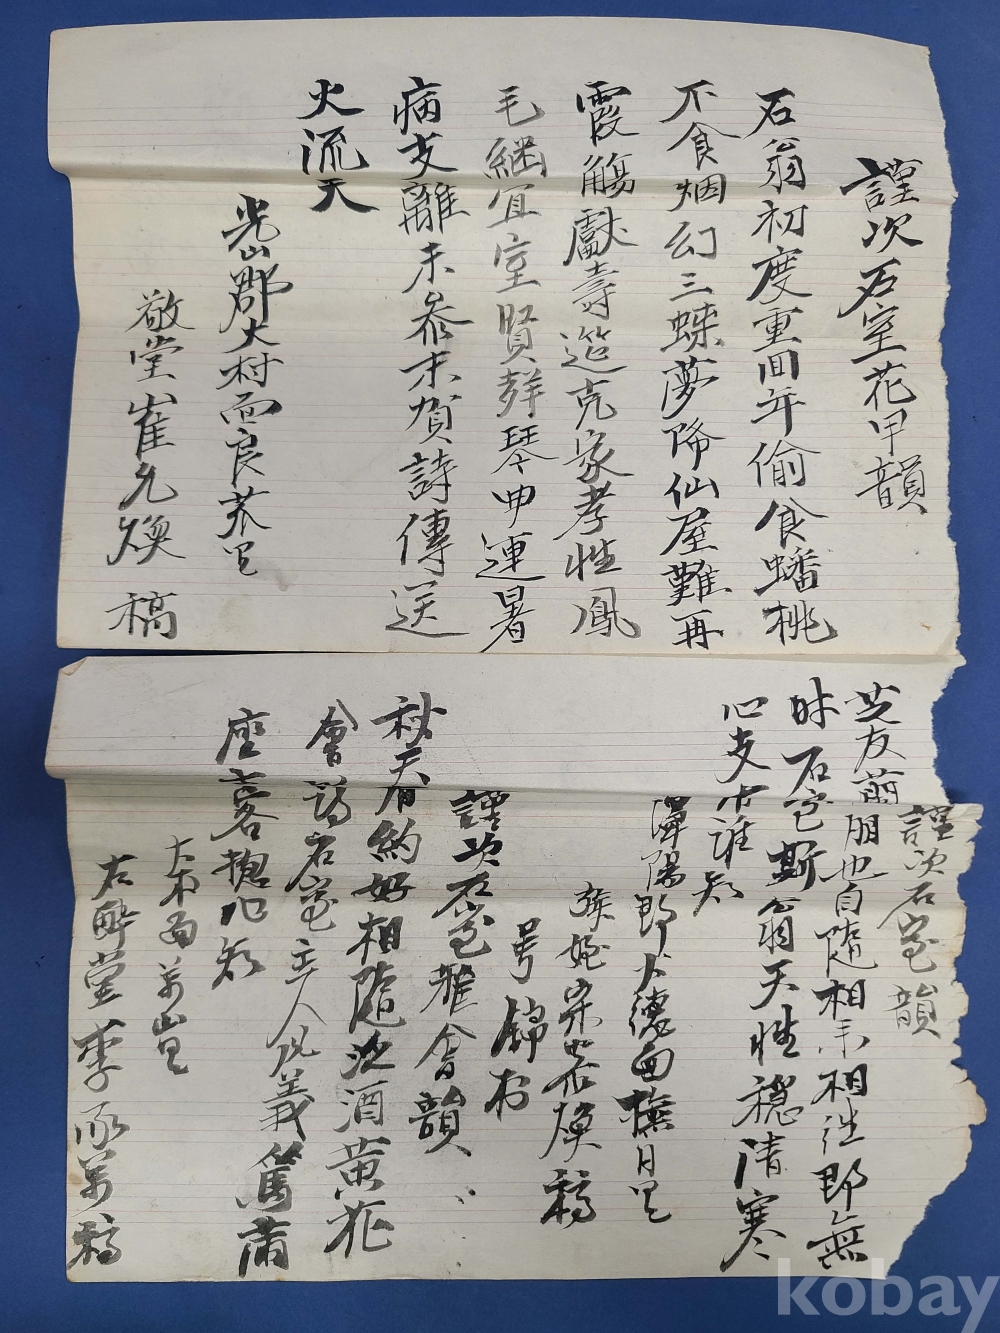 謹次石室花甲韻
石翁初度重回年偷食蟠桃
不食烟幻三蝶夢降仙屋難再
霞觴獻壽筵克家孝性鳳
毛継宜室賢鮮琴曲連暑
病支離未參末賀詩傳送
火流天
光山郡大村面良苽里
敬堂崔允煥 稿
謹次石室韻
芝友蘭朋也自隨相未相逢即無
时石室斯翁天性穏清寒
心支市誰知
潭陽郡大德面 月里
族姪宗 煥稿
号錦
謹次石室雅會韻
秋春約好相隨泛酒黄花
會詩石室主人仁義篤滿
座喜 知
大村面 山里
石醉堂李承萬稿
kobay